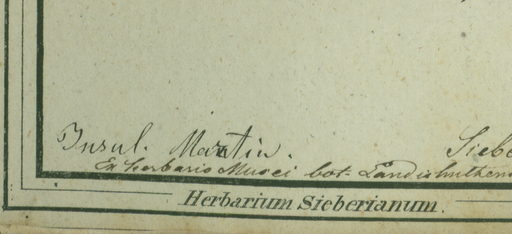 Insul. Martin. Siebe
Ex herbario Musei bot. Landishuthens
Herbarium Sieberianum.